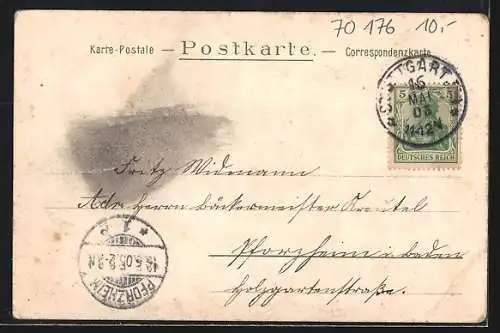 70 176 10.-
Karte-Postale – Postkarte. – Correspondenzkarte
STUTTGART
16
MAI
05
11-12V
5 5
DEUTSCHES REICH
Fritz Widmann
Adr. Herrn Bäckermeister Kreutel
Pforzheim in Baden
Holzgartenstraße.
* 1 c
16.5.05.2-3N
PFORZHEIM